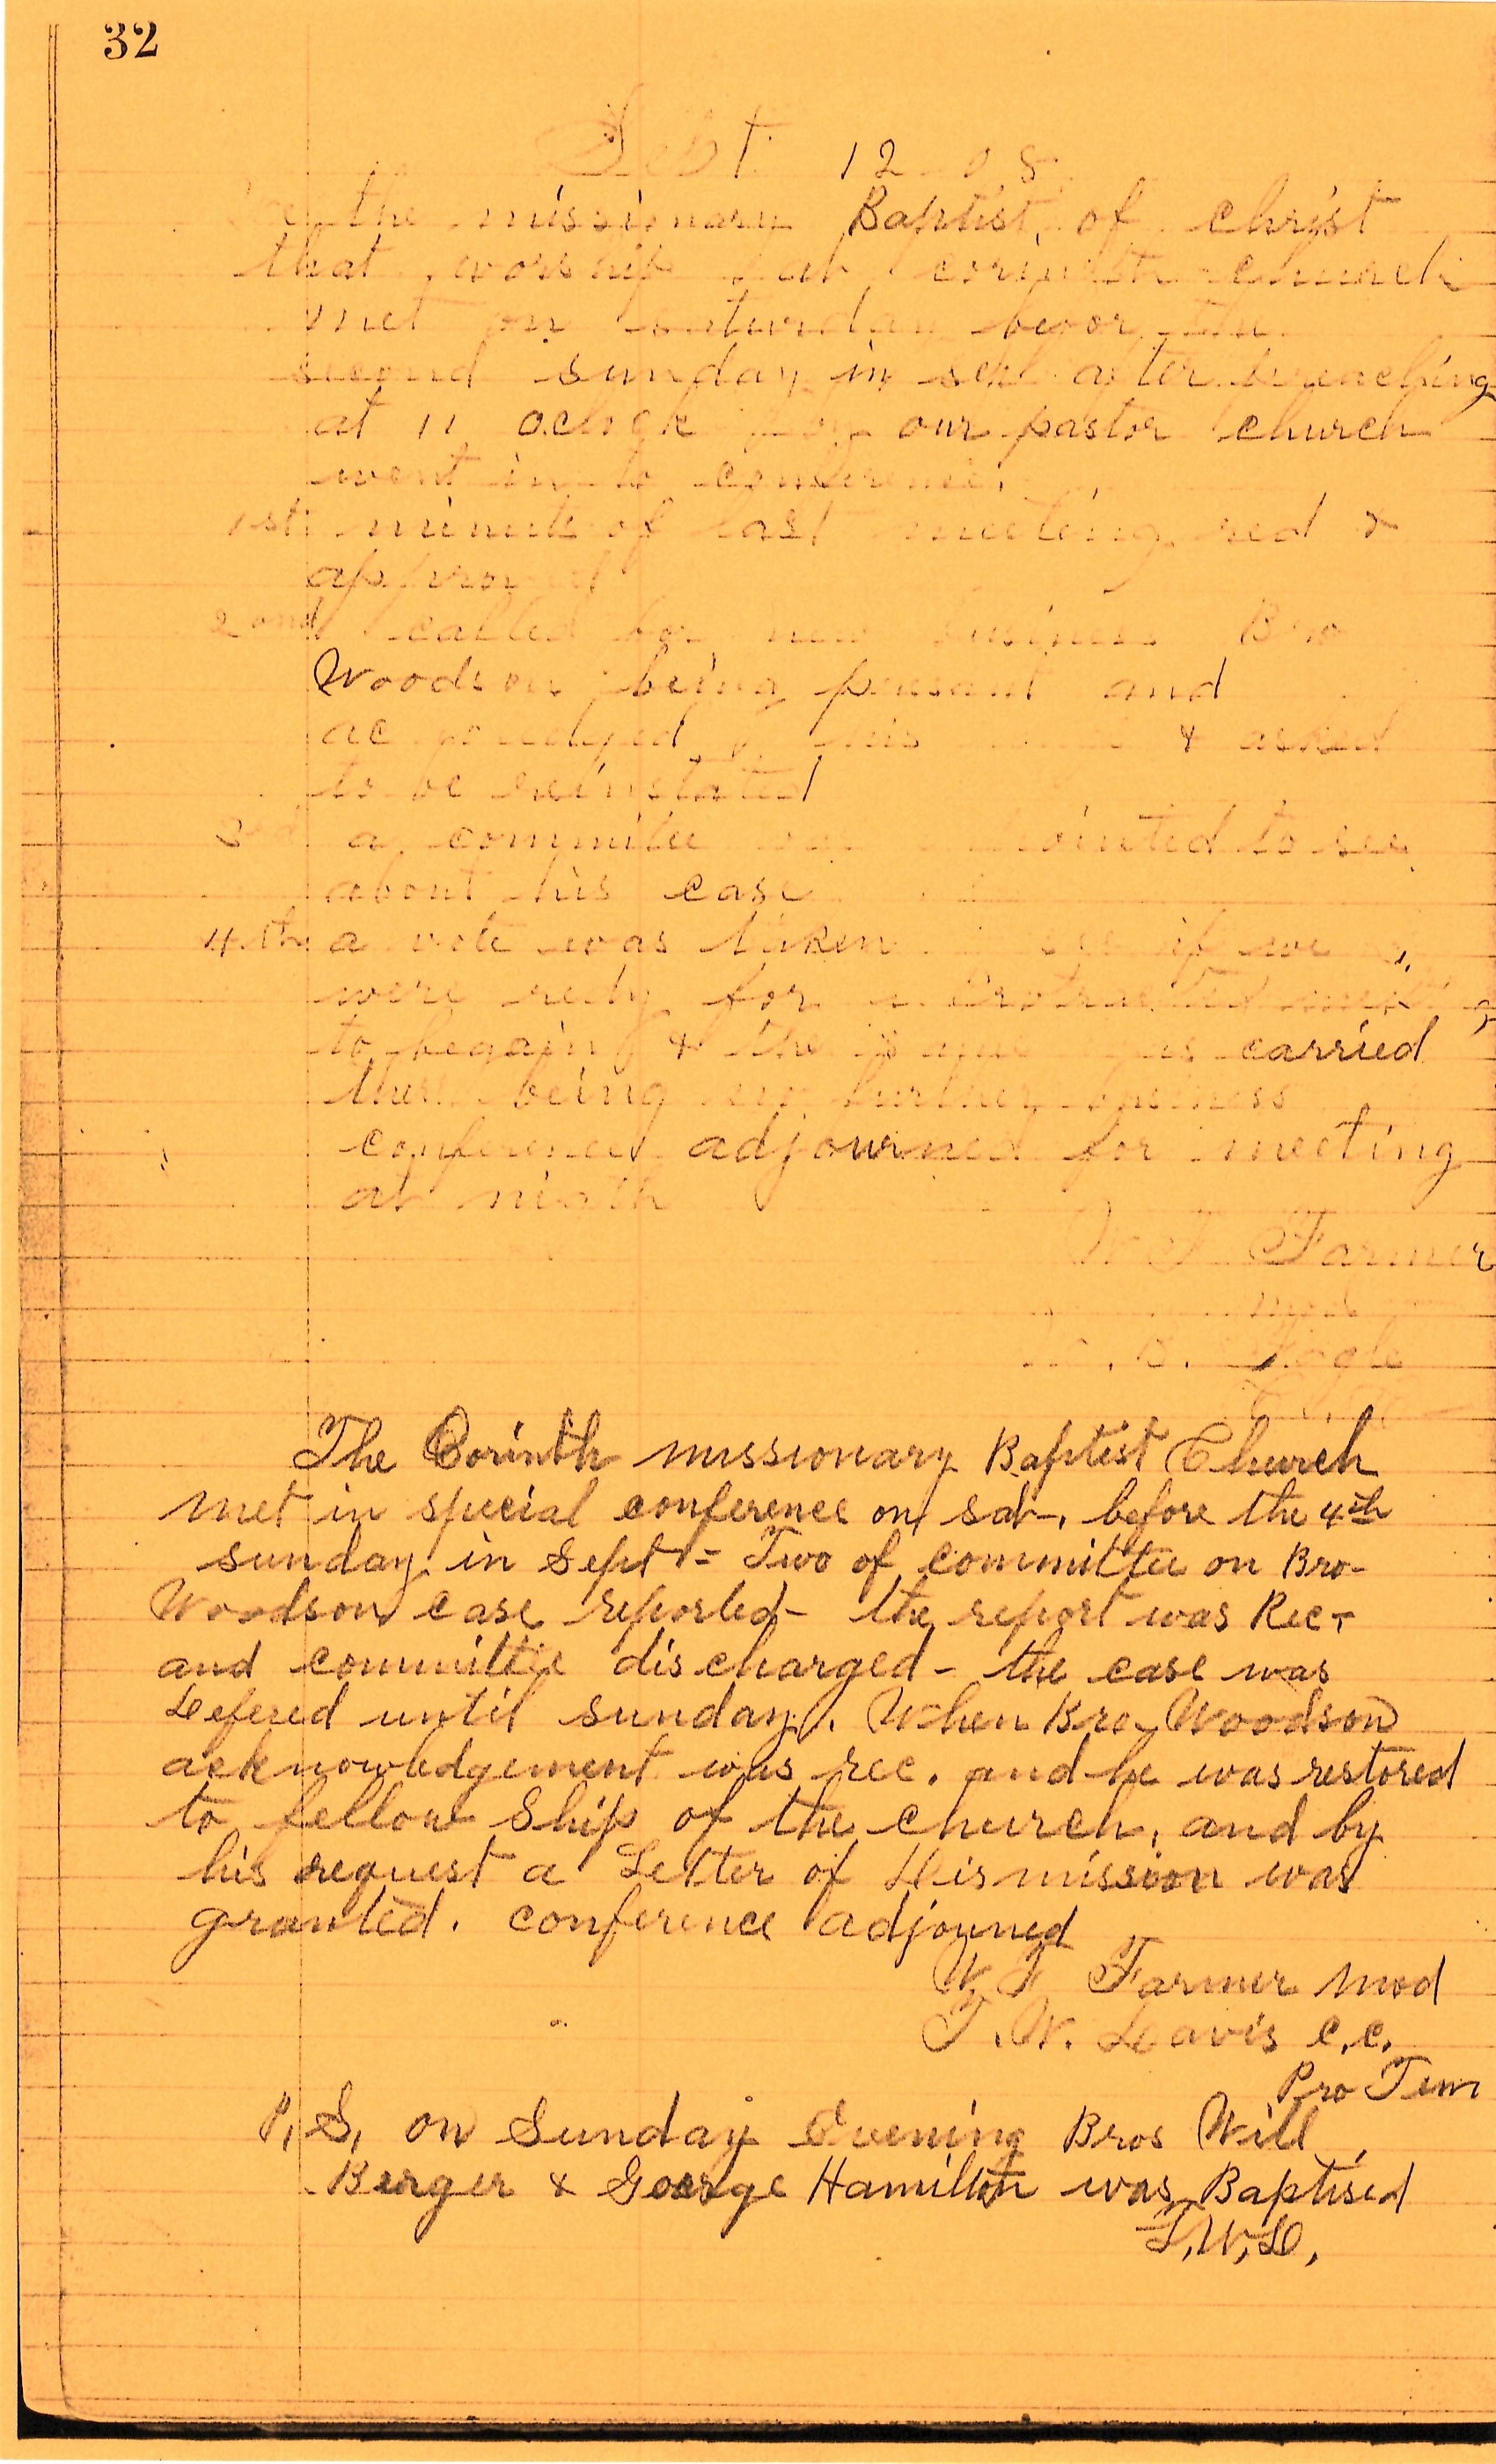 32
Sept 12 08
We the missionary Baptist of christ
that worship at corinth church
met on saturday befor the
second sunday in sept after preaching
at 11 oclock by our pastor church
went in to conference.
1st minute of last meeting red &
approved
2ond called for new business Bro
Woodson being presant and
& asked
to be reinstated
3rd a commitee was appointed to see
about his case
4.th a vote was taken to see if we
were redy for a protracted
to begain & the same was carried
ther being no further
conference adjourned for meeting
at
W T Farmer
mod
Fogle
The Corinth missionary Baptist Church
met in special conference on sat-. before the 4th
sunday in Sept = Two of committee on Bro-
Woodson case reported- the report was Rec-
and committee discharged - the case was
Defered until sunday. When Bro- Woodson
acknowledgement was rec. and he was restored
to fellow Ship of the church, and by
his request a Letter of Dismission was
granted. conference adjouned
W. T. Farmer Mod
T. W. Davis C.C.
Pro Tem
P, S, on Sunday Evening Bros Will
Berger & George Hamilton was Baptised
T, W, D,